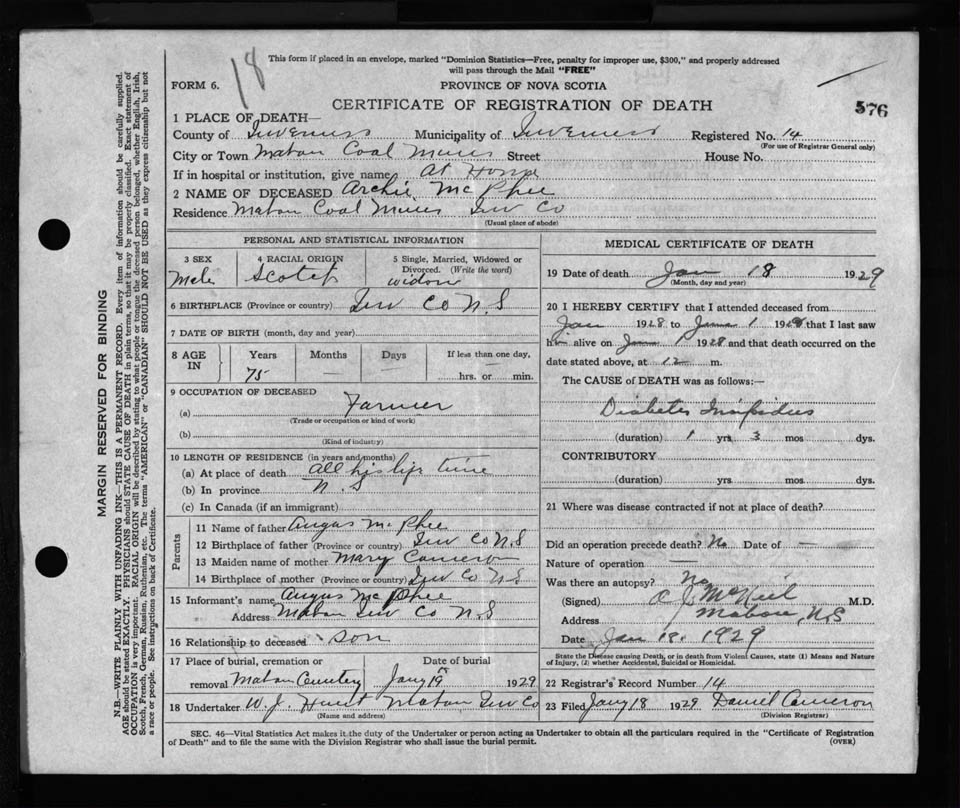 This form if placed in an envelope, marked "Dominion Statistics—Free, penalty for improper use, $300," and properly addressed
will pass through the Mail "FREE"
18
FORM 6.
PROVINCE OF NOVA SCOTIA
CERTIFICATE OF REGISTRATION OF DEATH
576
1 PLACE OF DEATH—
County of Inverness Municipality of Inverness Registered No. 14
(For use of Registrar General only)
City or Town Mabou Coal Mines Street House No.
If in hospital or institution, give name At Home
2 NAME OF DECEASED Archie McPhee
Residence Mabou Coal Mines Inv Co
(Usual place of abode)
PERSONAL AND STATISTICAL INFORMATION
3 SEX
Male
4 RACIAL ORIGIN
Scotch
5 Single, Married, Widowed or
Divorced. (Write the word)
widow
6 BIRTHPLACE (Province or country) Inv Co N.S
7 DATE OF BIRTH (month, day and year)
8 AGE IN
Years Months Days If less than one day,
75 — — hrs. or min.
9 OCCUPATION OF DECEASED
(a) Farmer
(Trade or occupation or kind of work)
(b)
(Kind of industry)
10 LENGTH OF RESIDENCE (in years and months)
(a) At place of death all his life time
(b) In province N.S
(c) In Canada (if an immigrant)
Parents
11 Name of father Angus McPhee
12 Birthplace of father (Province or country) Inv Co N.S
13 Maiden name of mother Mary Cameron
14 Birthplace of mother (Province or country) Inv Co N.S
15 Informant's name Angus McPhee
Address Mabou Inv Co N.S
16 Relationship to deceased son
17 Place of burial, cremation or Date of burial
removal Mabou Cemetery Jany 19 1929
18 Undertaker W.J. Hunt Mabou Inv Co
(Name and address)
MEDICAL CERTIFICATE OF DEATH
19 Date of death Jan 18 1929
(Month, day and year)
20 I HEREBY CERTIFY that I attended deceased from
Jan 1928 to 1 192 that I last saw
him alive on 1 1928 and that death occurred on the
date stated above, at 12 m.
The CAUSE OF DEATH was as follows:—
Diabetes Insipidus
(duration) 1 yrs. 3 mos. dys.
CONTRIBUTORY
(duration) yrs. mos. dys.
21 Where was disease contracted if not at place of death?
Did an operation precede death? No Date of —
Nature of operation —
Was there an autopsy? No
(Signed) A J McNeil M.D.
Address Mabou, N.S
Date Jan 18. 1929
State the Disease causing Death, or in death from Violent Causes, state (1) Means and Nature
of Injury, (2) whether Accidental, Suicidal or Homicidal.
22 Registrar's Record Number 14
23 Filed Jany 18 1929 Daniel Cameron
(Division Registrar)
SEC. 46—Vital Statistics Act makes it the duty of the Undertaker or person acting as Undertaker to obtain all the particulars required in the "Certificate of Registration
of Death" and to file the same with the Division Registrar who shall issue the burial permit.
(OVER)
MARGIN RESERVED FOR BINDING
N.B.—WRITE PLAINLY, WITH UNFADING INK—THIS IS A PERMANENT RECORD. Every item of information should be carefully supplied.
AGE should be stated EXACTLY. PHYSICIANS should STATE CAUSE OF DEATH in plain terms, so that it may be properly classified. Exact statement of
OCCUPATION is very important. RACIAL ORIGIN will be described by stating to what people or tongue the deceased person belonged, whether English, Irish,
Scotch, French, German, Russian, Ruthenian, etc. The terms "AMERICAN" or "CANADIAN" SHOULD NOT BE USED as they express citizenship but not
a race or people. See instructions on back of Certificate.